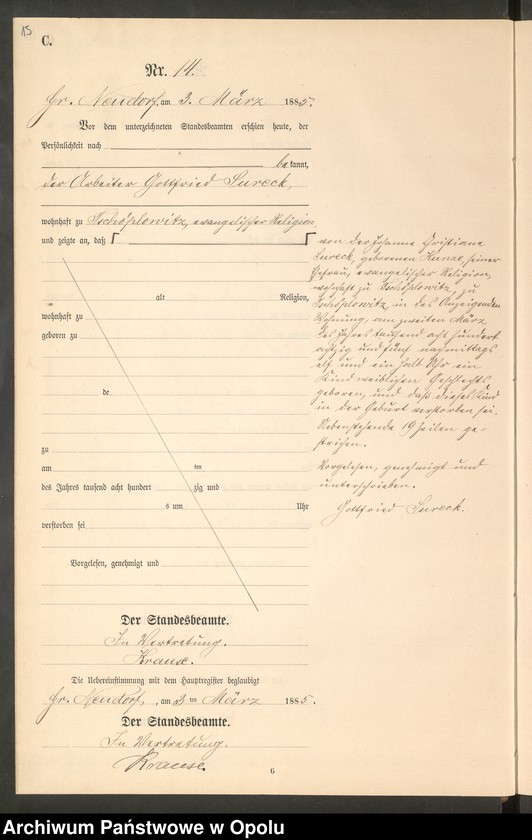 15
C.
Nr. 14.
Gr. Neudorf, am 3. März 1885.
Vor dem unterzeichneten Standesbeamten erschien heute, der
Persönlichkeit nach
bekannt,
der Arbeiter Gottfried Sureck,
wohnhaft zu Tschöplowitz, evangelischer Religion,
und zeigte an, daß
von der Johanne Christiane
Sureck, geborenen Kunze, seiner
Ehefrau, evangelischer Religion,
wohnhaft zu Tschöplowitz, zu
Tschöplowitz, in des Anzeigenden
Wohnung, am zweiten März
des Jahres tausend acht hundert
achtzig und fünf nachmittags
elf und ein halb Uhr ein
Kind weiblichen Geschlechts
geboren, und daß dieses Kind
in der Geburt verstorben sei.
Nebenstehende 19 Zeilen ge-
strichen.
Vorgelesen, genehmigt und
unterschrieben.
Gottfried Sureck.
alt Religion,
wohnhaft zu
geboren zu
de
zu
am ten
des Jahres tausend acht hundert zig und
s um Uhr
verstorben sei
Vorgelesen, genehmigt und
Der Standesbeamte.
In Vertretung.
Krause.
Die Uebereinstimmung mit dem Hauptregister beglaubigt
Gr. Neudorf, am 3 ten März 1885.
Der Standesbeamte.
In Vertretung.
Krause.
6
Archiwum Państwowe w Opolu